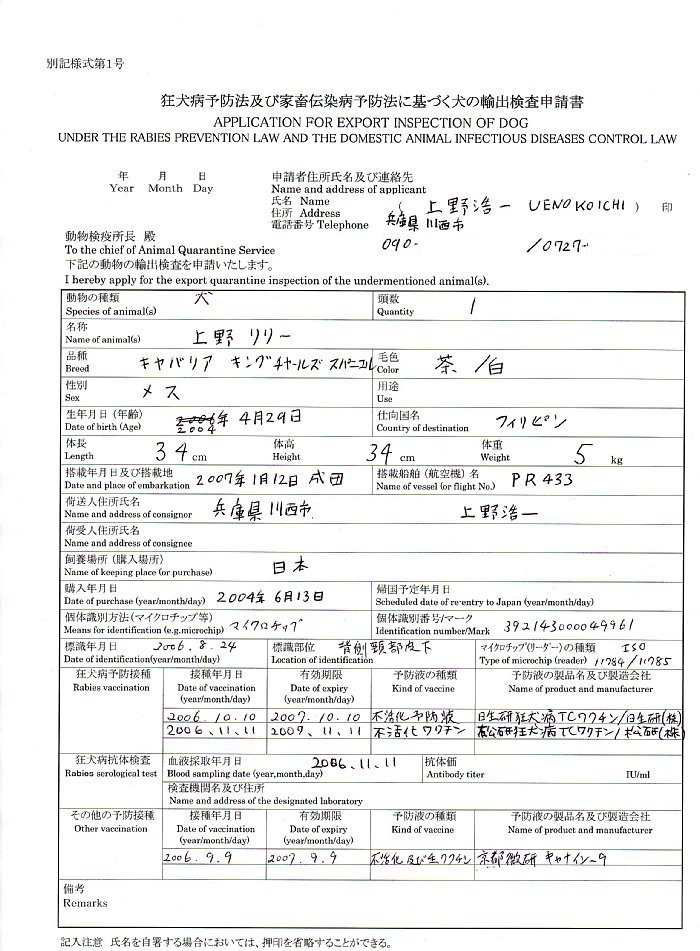 別記様式第1号
狂犬病予防法及び家畜伝染病予防法に基づく犬の輸出検査申請書
APPLICATION FOR EXPORT INSPECTION OF DOG
UNDER THE RABIES PREVENTION LAW AND THE DOMESTIC ANIMAL INFECTIOUS DISEASES CONTROL LAW
年 月 日
Year Month Day
申請者住所氏名及び連絡先
Name and address of applicant
氏名 Name ( 上野浩一 UENO KOICHI ) 印
住所 Address 兵庫県川西市
電話番号 Telephone 090- /0727-
動物検疫所長 殿
To the chief of Animal Quarantine Service
下記の動物の輸出検査を申請いたします。
I hereby apply for the export quarantine inspection of the undermentioned animal(s).
動物の種類 犬 頭数 1
Species of animal(s) Quantity
名称 上野 リリー
Name of animal(s)
品種 キャバリア キングチャールズ スパニエル 毛色 茶/白
Breed Color
性別 メス 用途
Sex Use
生年月日(年齢) 2004年4月29日 仕向国名 フィリピン
Date of birth (Age) Country of destination
体長 34 cm 体高 34 cm 体重 5 kg
Length Height Weight
搭載年月日及び搭載地 2007年1月12日 成田 搭載船舶(航空機)名 PR433
Date and place of embarkation Name of vessel (or flight No.)
荷送人住所氏名 兵庫県川西市 上野浩一
Name and address of consignor
荷受人住所氏名
Name and address of consignee
飼養場所(購入場所) 日本
Name of keeping place (or purchase)
購入年月日 2004年6月13日 帰国予定年月日
Date of purchase (year/month/day) Scheduled date of re-entry to Japan (year/month/day)
個体識別方法(マイクロチップ等) マイクロチップ 個体識別番号/マーク 392143000049961
Means for identification (e.g.microchip) Identification number/Mark
標識年月日 2006.8.24 標識部位 背側頸部皮下 マイクロチップ(リーダー)の種類 ISO
Date of identification(year/month/day) Location of identification Type of microchip (reader) 11784/11785
狂犬病予防接種 接種年月日 有効期限 予防液の種類 予防液の製品名及び製造会社
Rabies vaccination Date of vaccination Date of expiry Kind of vaccine Name of product and manufacturer
(year/month/day) (year/month/day)
2006.10.10 2007.10.10 不活化予防液 日生研狂犬病TCワクチン/日生研(株)
2006.11.11 2007.11.11 不活化ワクチン 松研狂犬病TCワクチン/松研(株)
狂犬病抗体検査 血液採取年月日 2006.11.11 抗体価
Rabies serological test Blood sampling date (year,month,day) Antibody titer IU/ml
検査機関名及び住所
Name and address of the designated laboratory
その他の予防接種 接種年月日 有効期限 予防液の種類 予防液の製品名及び製造会社
Other vaccination Date of vaccination Date of expiry Kind of vaccine Name of product and manufacturer
(year/month/day) (year/month/day)
2006.9.9 2007.9.9 不活化及び生ワクチン 京都微研 キャナイン-9
備考
Remarks
記入注意 氏名を自署する場合においては、押印を省略することができる。